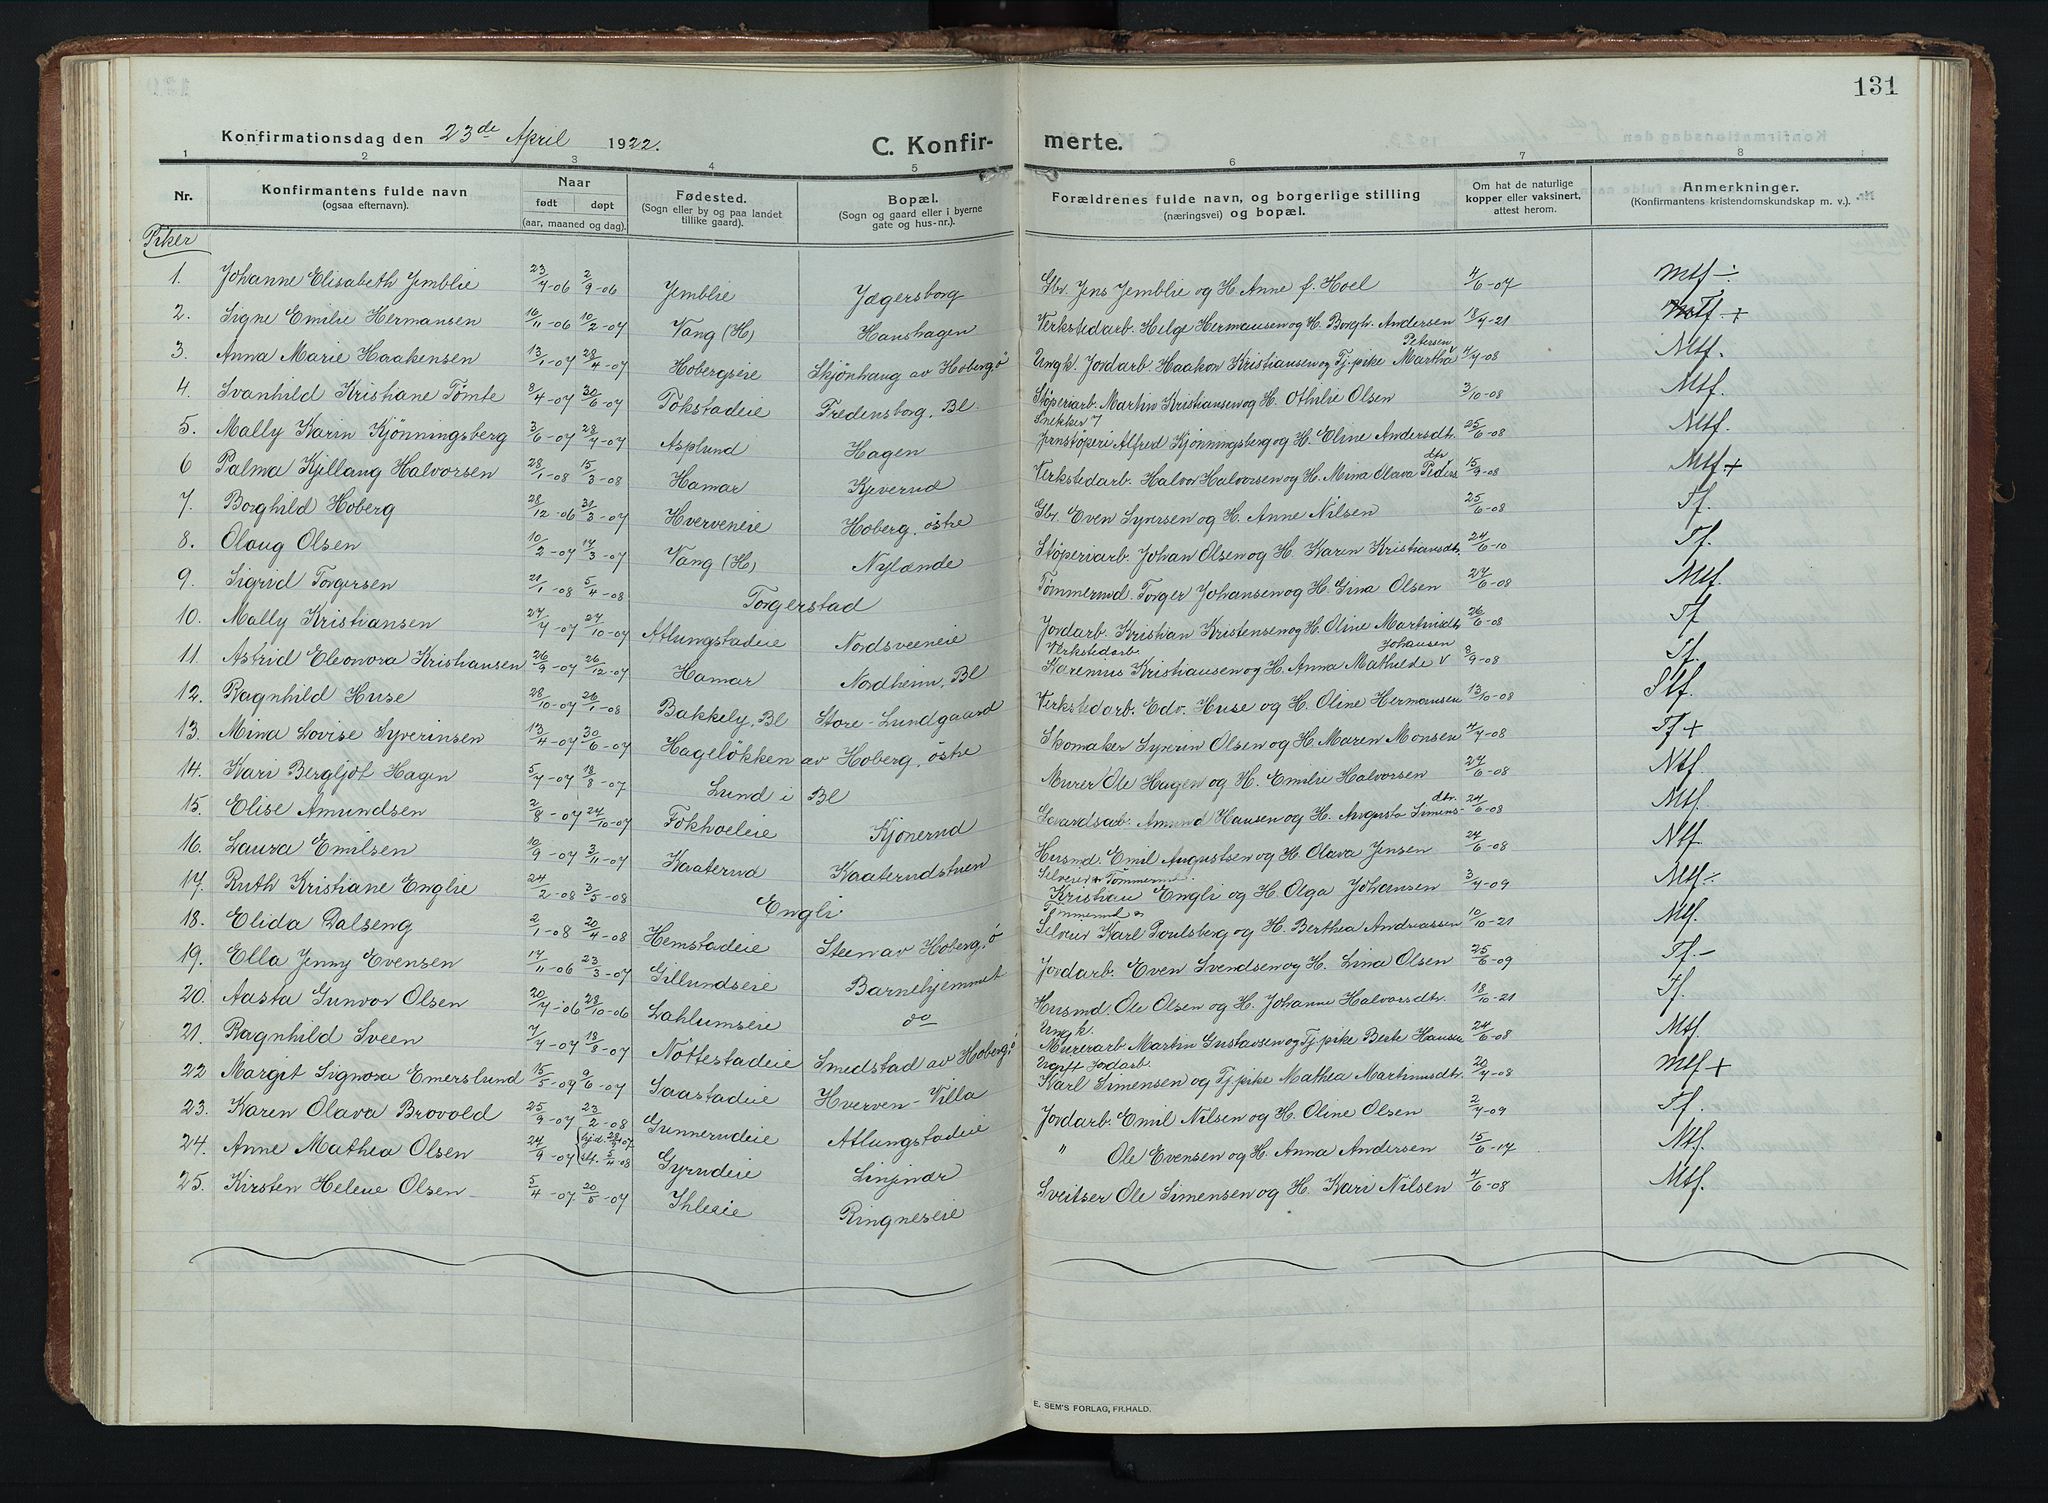 131
Konfirmationsdag den 23de April 1922.
C. Konfir- merte.
1 2 3 4 5 6 7 8
Nr. Konfirmantens fulde navn (ogsaa efternavn). Naar født døpt (aar, maaned og dag). Fødested. (Sogn eller by og paa landet tillike gaard). Bopæl. (Sogn og gaard eller i byerne gate og hus-nr.). Forældrenes fulde navn, og borgerlige stilling (næringsvei) og bopæl. Om hat de naturlige kopper eller vaksinert, attest herom. Anmerkninger. (Konfirmantens kristendomskundskap m. v.).
Piker
1. Johanne Elisabeth Jemblie 23/7-06 2/9-06 Jemblie Jægersborg Gbr. Jens Jemblie og H. Anne f. Hoel 4/6-07 Mtf ÷
2. Signe Emilie Hermansen 16/11-06 10/2-07 Vang (H) Hanshagen Verkstedarb. Helge Hermansen og H. Borgh. Andersen 18/7-21 Mtf. +
3. Anna Marie Haakensen 13/1-07 28/4-07 Hobergseie Skjönhaug av Hoberg ö Ungk. Jordarb. Haakon Kristiansen og Tj.pike Martha Petersen 4/7-08 Mtf.
4. Svanhild Kristiane Tömte 8/4-07 30/6-07 Fokstadeie Fredensborg, Bl. Stöperiarb. Martin Kristiansen og H. Othilie Olsen 3/10-08 Mtf.
5. Mally Karin Kjönningsberg 3/6-07 28/7-07 Asplund Hagen Snekker i Jernstöperi Alfred Kjönningsberg og H. Eline Andersdtr. 25/6-08 Mtf.
6 Palma Kjellaug Halvorsen 28/1-08 15/3-08 Hamar Kjeverud Verkstedarb. Halvor Halvorsen og H. Mina Olava Peders dtr 15/9-08 Mtf +
7. Borghild Hoberg 28/12-06 31/3-07 Hverveneie Hoberg, östre Gbr. Even Syversen og H. Anne Nilsen 25/6-08 Tf.
8. Olaug Olsen 10/2-07 17/3-07 Vang (H) Nylænde Stöperiarb. Johan Olsen og H. Karen Kristiansdtr. 24/6-10 Tf.
9. Sigrid Torgersen 21/1-08 5/4-08 Torgerstad Tömmermd. Torger Johansen og H. Gina Olsen 27/6-08 Mtf.
10. Mally Kristiansen 27/7-07 27/10-07 Atlungstadeie Nordsveeneie Jordarb. Kristian Kristensen og H. Oline Martinsdtr. 26/6-08 Tf
11. Astrid Eleonora Kristiansen 26/9-07 26/12-07 Hamar Nordheim, Bl Verkstedarb. Karenius Kristiansen og H. Anna Mathilde Johansen 3/9-08 Tf.
12. Ragnhild Huse 28/10-07 26/1-08 Bakkely, Bl Store-Lundgaard Verkstedarb. Edv. Huse og H. Oline Hermansen 13/10-08 Stf.
13. Mina Lovise Syverinsen 13/4-07 30/6-07 Hagelökken av Hoberg, östre Skomaker Syverin Olsen og H. Maren Monsen 4/7-08 Tf +
14. Kari Bergljot Hagen 5/7-07 18/8-07 Lund i Bl Murer Ole Hagen og H. Emilie Halvorsen 27/6-08 Ntf.
15. Elise Amundsen 2/8-07 27/10-07 Fokholeie Kjönerud Gaardsarb. Amund Hansen og H. Augusta Simens-dtr. 24/6-08 Mtf.
16. Laura Emilsen 10/9-07 3/11-07 Kaaterud Kaaterudstuen Husmd. Emil Augustsen og H. Olava Jensen 24/6-08 Ntf.
17. Ruth Kristiane Englie 24/2-08 3/5-08 Engli Selveier Tömmermd. Kristian Engli og H. Olga Johansen 3/7-09 Mtf ÷
18. Elida Dalseng 2/1-08 20/4-08 Hemstadeie Steen av Hoberg, ö Tömmermd. Selveier Karl Poulsberg og H. Berthea Andreassen 10/10-21 Mtf.
19. Ella Jenny Evensen 17/11-06 23/3-07 Gillundseie Barnehjemmet Jordarb. Even Svendsen og H. Lina Olsen 25/6-09 Tf -
20. Aasta Gunvor Olsen 20/7-06 28/10-06 Lahlumseie do Husmd. Ole Olsen og H. Johanne Halvorsdtr. 18/10-21 Tf.
21. Ragnhild Sveen 7/7-07 18/8-07 Nöttestadeie Smedstad av Hoberg, ö Ungk. Murerarb Martin Gustavsen og Tj.pike Berte Hansen 24/6-08 Mtf.
22 Margit Signora Emerslund 15/5-07 9/6-07 Saastadeie Hverven-Villa Ugift Jordarb. Karl Simensen og Tj.pike Mathea Martinusdtr. 20/7-08 Mtf +
23. Karen Olava Brovold 25/9-07 23/2-08 Gunnerudeie Atlungstadeie Jordarb. Emil Nilsen og H. Oline Olsen 2/7-09 Tf.
24. Anne Mathea Olsen 24/9-07 hjd. 28/9 07. st. 5/4-08 Gyrudeie Linjndr " Ole Evensen og H. Anna Andersen 15/6-17 Ntf.
25. Kirsten Helene Olsen 5/4-07 20/5-07 Ihleeie Ringneseie Sveitser Ole Simensen og H. Kari Nilsen 4/6-08 Mtf.
E. SEM'S FORLAG, FR.HALD.